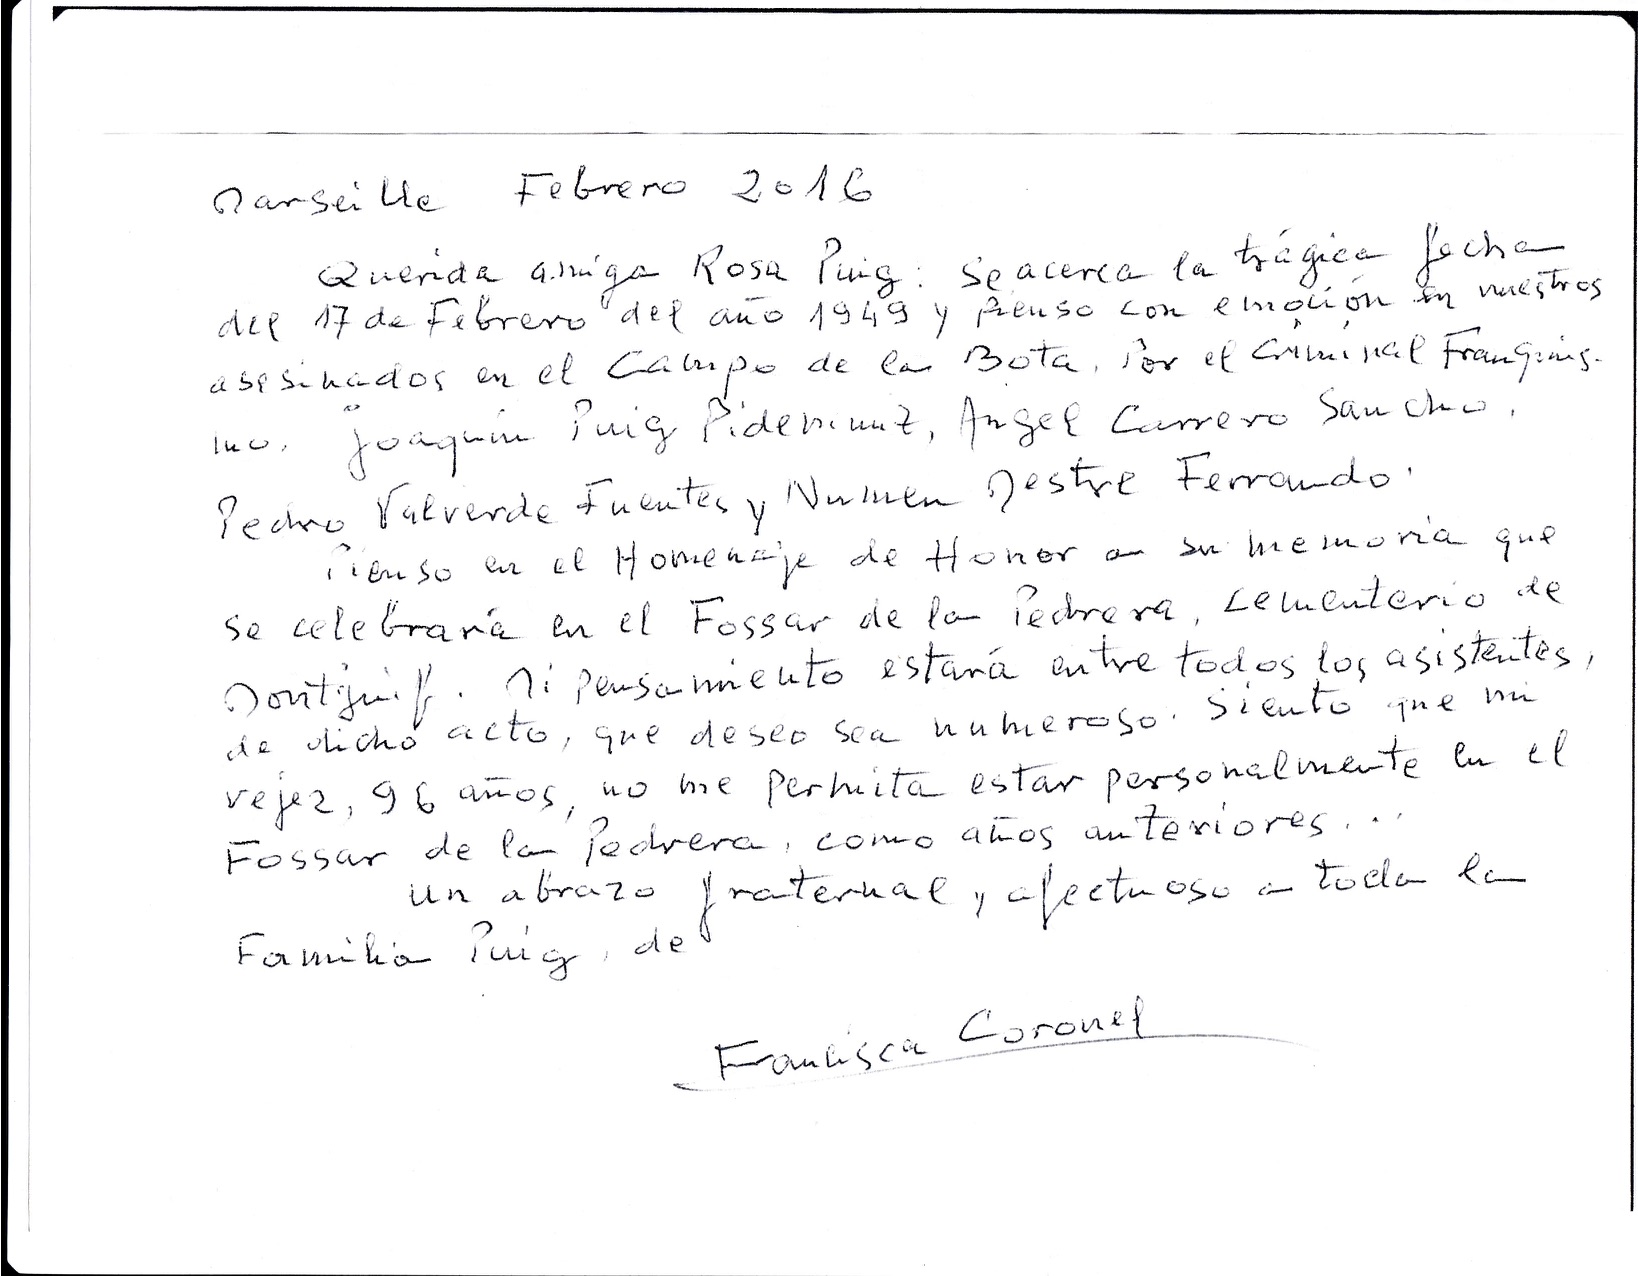 Marseille Febrero 2016
Querida amiga Rosa Puig: se acerca la trágica fecha
del 17 de Febrero del año 1949 y pienso con emoción en nuestros
asesinados en el Campo de la Bota, Por el Criminal Franquis-
mo. Joaquín Puig Pidemunt, Angel Carrero Sancho,
Pedro Valverde Fuentes y Numen Mestre Ferrando.
Pienso en el Homenaje de Honor a su memoria que
se celebrará en el Fossar de la Pedrera, cementerio de
Montjuif. Mi pensamiento estará entre todos los asistentes,
de dicho acto, que deseo sea numeroso. Siento que mi
vejez, 96 años, no me permita estar personalmente en el
Fossar de la Pedrera, como años anteriores...
Un abrazo fraternal y afectuoso a toda la
Familia Puig, de
Francisca Coronel